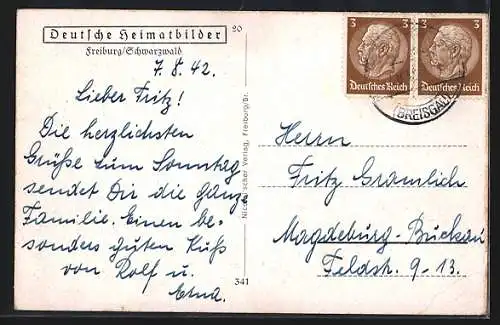 Deutsche Heimatbilder
20
Freiburg/Schwarzwald
7. 8. 42.
Lieber Fritz!
Die herzlichsten
Grüße zum Sonntag
sendet Dir die ganze
Familie. Einen be-
sonders guten Kuß
von Rolf u.
Erna.
Verlag, Freiburg/Br.
341
3 3
Deutsches Reich Deutsches Reich
(BREISGAU)
Herrn
Fritz Gramlich
Magdeburg-Buckau
Feldstr. 9-13.